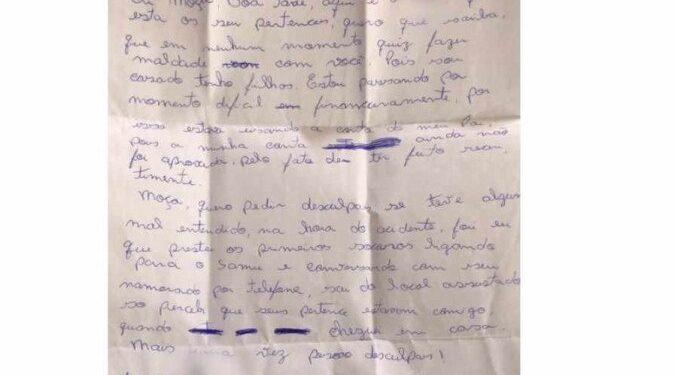 Oi Moça, Boa tarde, aqui é o
esta os seu pertences, quero que saiba,
que em nenhum momento quiz fazer
maldade com você. Pois sou
casado tenho filhos. Estou passando por
momento dificil financeiramente, por
isso estava usando a conta do meu Pai,
pois a minha conta ainda não
foi aprovada, pelo fato de ter feito recen
timente.
Moça, quero pedir desculpas, se teve algum
mal entendido, na hora do acidente, foi eu
que prestei os primeiros socorros ligando
para o Samu e conversando com seu
namorado por telefone, sai do local assustado
so percebi que seus pertence estavam comigo
quando cheguei em casa.
Mais uma vez desculpas!